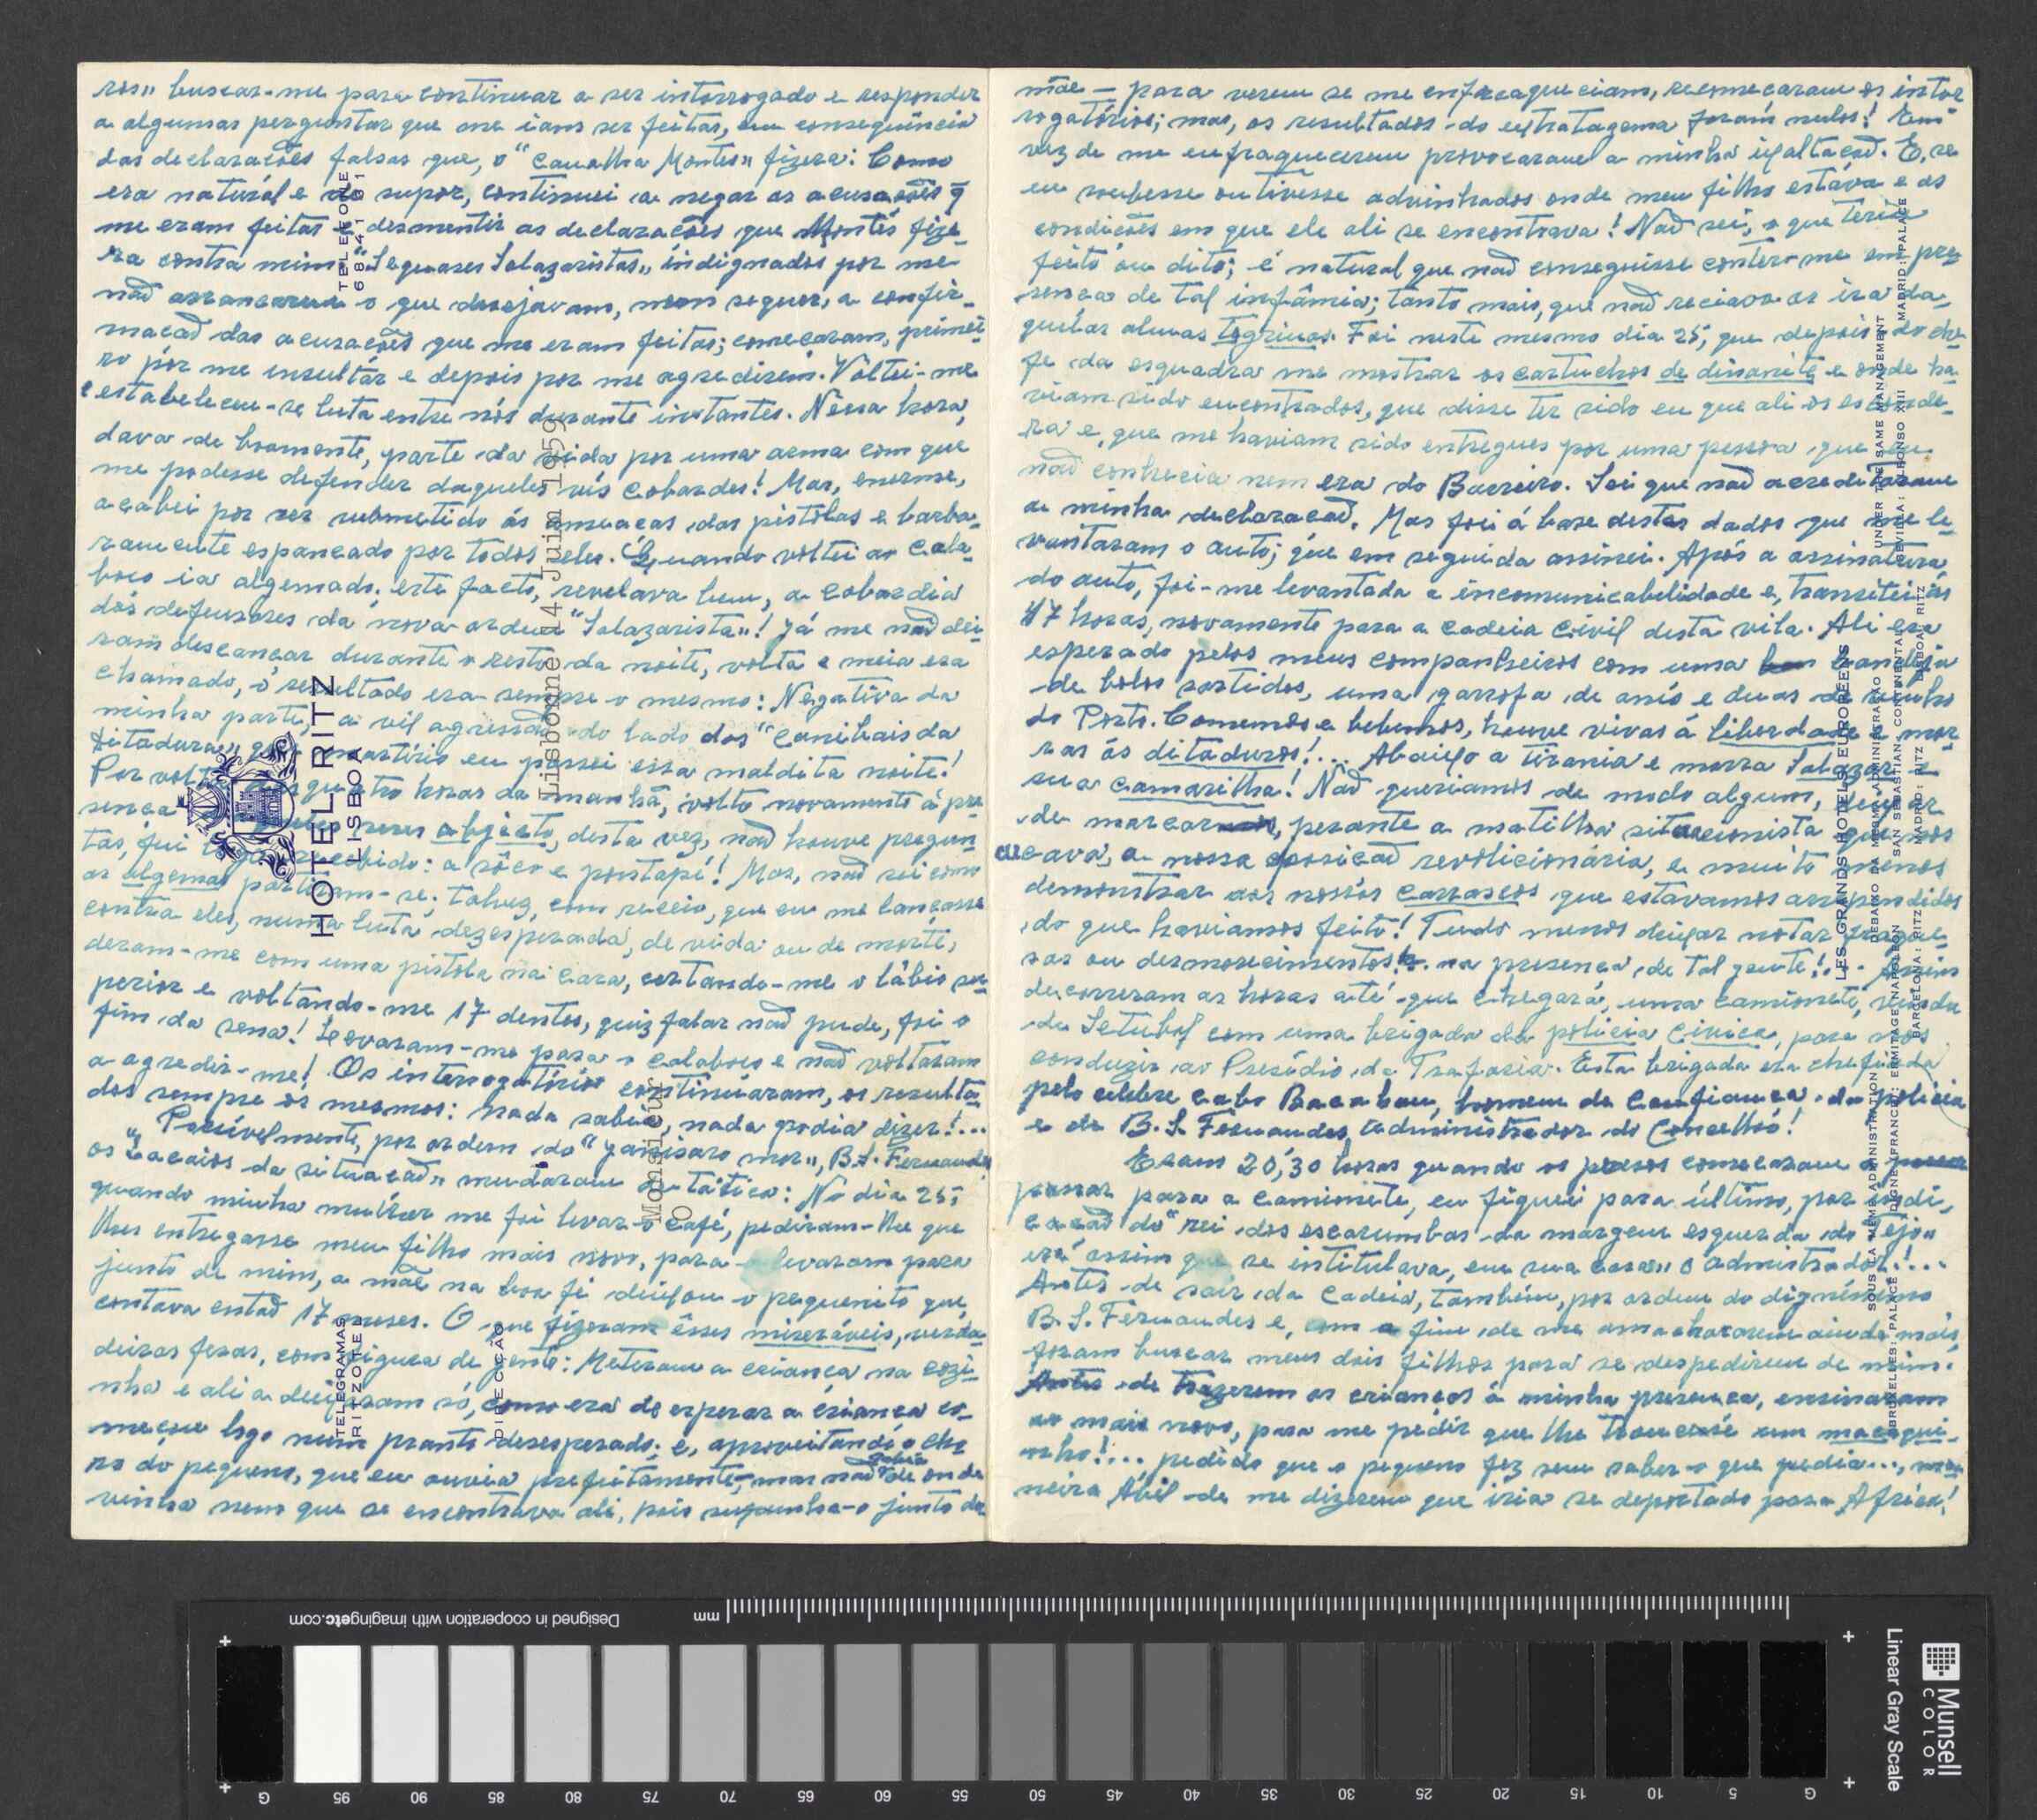 ros„ buscar-me para continuar a ser interrogado e responder
a algumas perguntas que me iam ser feitas, em consequência
das declarações falsas que, o "canalha Montes„ fizera: Como
era natural e de supor, continuei a negar as acusações q̃
me eram feitas e desmentir as declarações que Montês fize-
ra contra mim. "Sequases Salazaristas„ indignados por me
não arrancarem o que desejavam, nem sequer, a confir-
mação das acusações que me eram feitas; começaram, primei-
ro por me insultár e depois por me agredirem. Voltei-me
e estabeleceu-se luta entre nós durante instantes. Nessa hora,
dava de boamente, parte da vida por uma arma com que
me podesse defender daqueles vís cobardes! Mas, enerme,
acabei por ser submetido ás ameaças das pistolas e barba-
ramente espancado por todos eles. Quando voltei ao cala-
boço ia algemado, este facto, revelava bem, a cobardia
dos defensores da nova ordem "Salazarista„! Já me não dei-
xaram descançar durante o resto da noite, volta e meia era
chamado, o resultado era sempre o mesmo: Negativa da
minha parte, a vil agressão do lado dos "canibais da
ditadura„ que martírio eu passei essa maldita noite!
Por volta das quatro horas da manhã, volto novamente á pre
sença seres abjecto, desta vez, não houve pregun
tas, fui logo recebido: a sôco e pontapé! Mas, não sei como
as algemas partiram-se; talvez, com receio, que eu me lançasse
contra eles, numa luta dezesperada, de vida ou de morte,
deram-me com uma pistola na cara, cortando-me o lábio su-
perior e voltando-me 17 dentes, quiz falar não pude, foi o
fim da sena! Levaram-me para o calaboço e não voltaram
a agredir-me! Os interrogatórios continuáram, os resulta-
dos sempre os mesmos: nada sabia, nada podia dizer!...
Possívelmente, por ordem do "janisaro mor„, B.S. Fernandes
os "Lacaios da situação„ mudaram de tática: No dia 25,
quando minha mulher me foi levar o café, pediram-lhe que
lhes entregasse meu filho mais novo, para o levarem para
junto de mim, a mãe na boa fé deixou o pequenito que,
contava então 17 meses. O que fizeram êsses miseráveis, verda-
deiras feras, com figura de gente: Meteram a criança na cozi-
nha e ali a deixaram só, como era de esperar a criança co-
meçou logo num pranto desesperado; e, aproveitando o cho
ro do pequeno, que eu ouvia prefeitamente, mas não sabia de onde
vinha nem que se encontrava ali, pois supunha-o junto da
mãe — para verem se me enfraqueciam, recomeçaram os inter
rogatórios; mas, os resultados do extratagema foram nulos! Em
vez de me enfraquecerem provocaram a minha exaltação. E, se
eu soubesse ou tivesse advinhados onde meu filho estáva e as
condições em que ele ali se encontrava! Não sei, o que teria
feito ou dito; é natural que não conseguisse conter-me em pre-
sença de tal infâmia; tanto mais, que não reciava as iras da-
quelas almas tegrinas. Foi neste mesmo dia 25, que depois do che-
fe da esquadra me mostrar os cartuchos de dinamite e onde ha-
viam sido encontrados, que disse ter sido eu que ali os esconde-
ra e, que me haviam sido entregues por uma pessoa que eu
não conhecia nem era do Barreiro. Sei que não acreditaram
a minha declaração. Mas foi á base destes dados que me le-
vantaram o auto; que em seguida assinei. Após a assinatura,
do auto, foi-me levantada a incomunicabelidade e, transitei ás
17 horas, novamente para a cadeia civil desta vila. Ali era
esperado pelos meus companheiros com uma bandeja
de bolos sortidos, uma garrafa de anís e duas de vinho
do Porto. Comemos e bebemos, houve vivas á liberdade e mor-
ras ás ditaduras!... Abaixo a tirania e morra Salazar e
sua camarilha! Não queriamos de modo algum, deixar
de marcar, perante a matilha situacionista que nos
cercava, a nossa posição revolicionária, e muito menos
demonstrar aos nossos carrascos que estavamos arrependidos
do que haviamos feito! Tudo menos deixar notar fraque-
sas ou desmorecimentos na presença de tal gente!... Assim
decorreram as horas até que chegará, uma camionete, vinda
de Setubal com uma brigada da policia civica, para nos
conduzir ao Presídio da Trafaria. Esta brigada era chefiada
pelo celebre cabo Bacabau, homem de confiança da policia
e de B.S. Fernandes, administrador do Concelho!
Eram 20,30 horas quando os presos começaram a
passar para a camionete, eu fiquei para último, por indi-
cação do "rei dos escarumbas da margem esquerda do Tejo„
era assim que se intitulava, em sua casa„ o admistrador!...
Antes de sair da cadeia, também, por ordem do digníssimo
B.S. Fernandes e, com o fim de me amachucarem ainda mais,
foram buscar meus dois filhos para se despedirem de mim.
Antes de trazerem as crianças á minha presença, ensinaram
ao mais novo, para me pedir que lhe troucesse um macaqui-
nho!... pedido que o pequeno fez sem saber o que pedia...; ma-
neira hábil de me dizerem que iria se deportado para Africa!
TELEFONE
684181
HOTEL RITZ
LISBOA
TELEGRAMAS
RITZOTEL
DIRECÇÃO
Lisbonne 14 Juin 1959
Monsieur
O
LES GRANDS HOTELS EUROPÉENS
SOUS LA MÊME ADMINISTRATION DEBAIXO DA MESMA ADMINISTRAÇÃO UNDER THE SAME MANAGEMENT
BRUXELLES: PALACE DIGNE (FRANCE): ERMITAGE NAPOLÉON SAN SEBASTIAN: CONTINENTAL SEVILLA: ALFONSO XIII MADRID: PALACE
BARCELONA: RITZ MADRID: RITZ LISBOA: RITZ
Designed in cooperation with imagingetc.com
mm
G 95 90 85 80 75 70 65 60 55 50 45 40 35 30 25 20 15 10 5 G
Munsell
COLOR
Linear Gray Scale